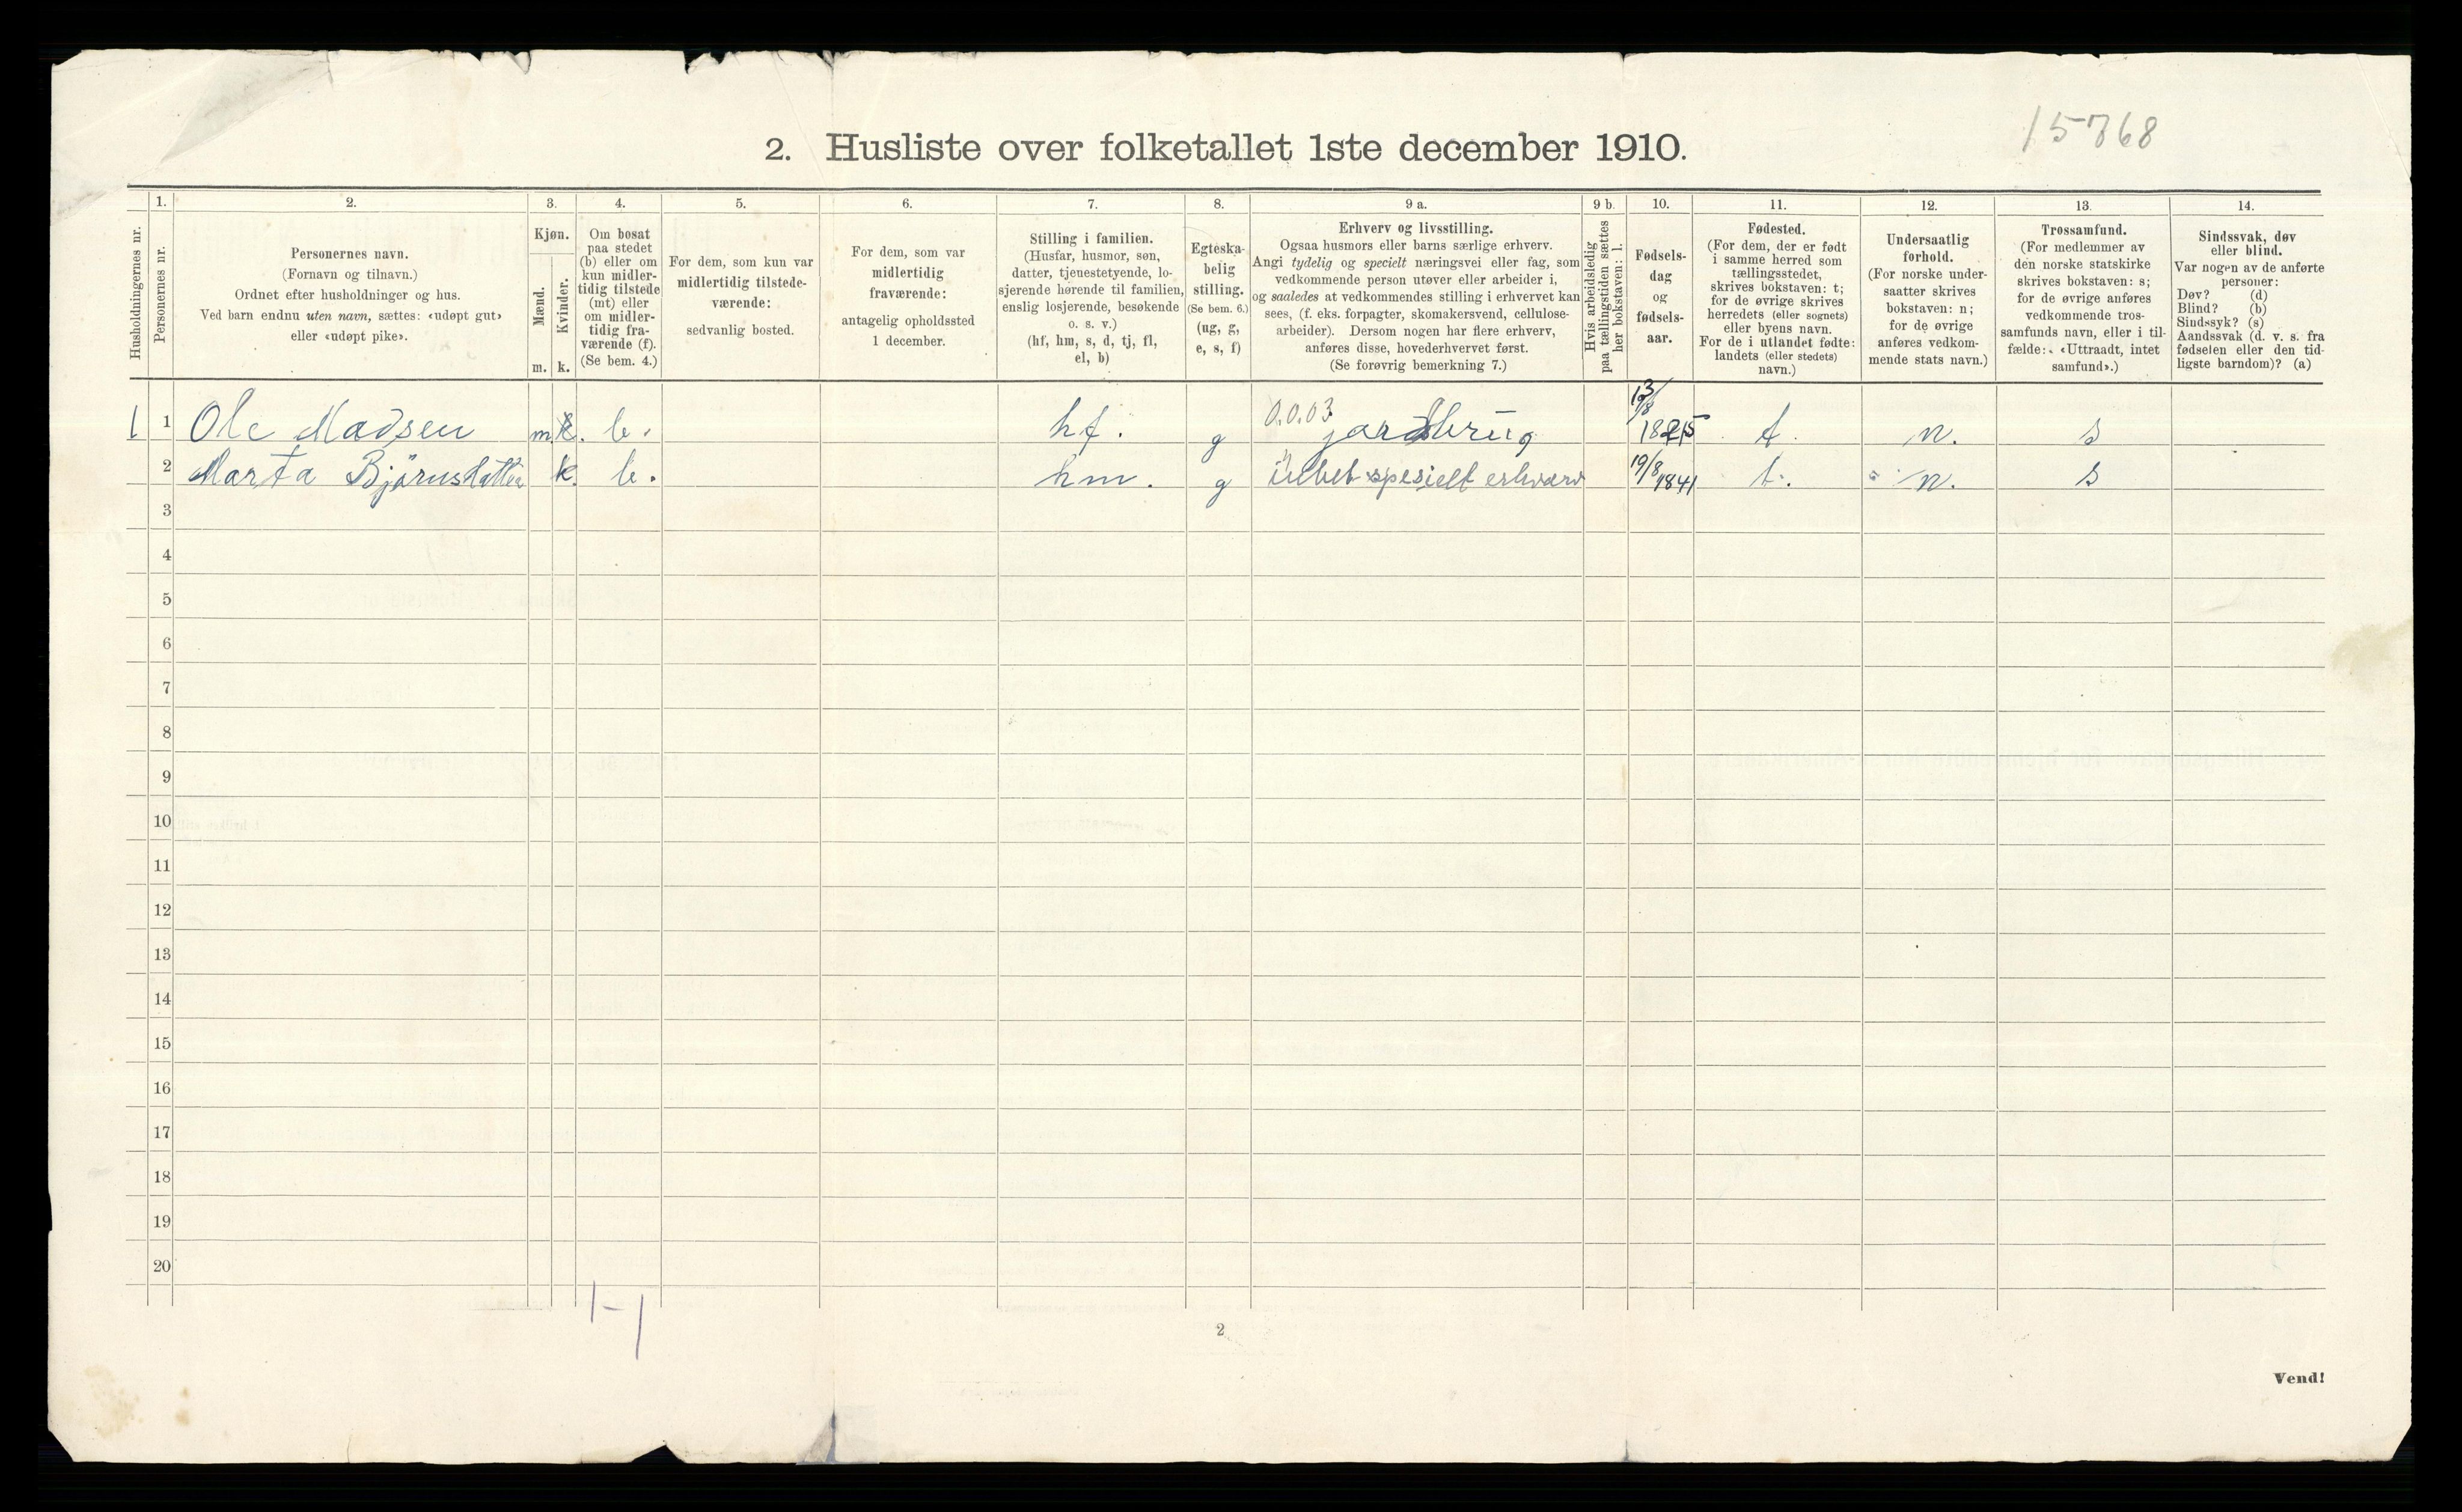 15768
2. Husliste over folketallet 1ste december 1910.
1. 2. 3. 4. 5. 6. 7. 8. 9 a. 9 b. 10. 11. 12. 13. 14.
Husholdningernes nr.
Personernes nr.
Personernes navn.
(Fornavn og tilnavn.)
Ordnet efter husholdninger og hus.
Ved barn endnu uten navn, sættes: «udøpt gut»
eller «udøpt pike».
Kjøn.
Mænd.
Kvinder.
m. k.
Om bosat
paa stedet
(b) eller om
kun midler-
tidig tilstede
(mt) eller
om midler-
tidig fra-
værende (f).
(Se bem. 4.)
For dem, som kun var
midlertidig tilstede-
værende:
sedvanlig bosted.
For dem, som var
midlertidig
fraværende:
antagelig opholdssted
1 december.
Stilling i familien.
(Husfar, husmor, søn,
datter, tjenestetyende, lo-
sjerende hørende til familien,
enslig losjerende, besøkende
o. s. v.)
(hf, hm, s, d, tj, fl,
el, b)
Egteska-
belig
stilling.
(Se bem. 6.)
(ug, g,
e, s, f)
Erhverv og livsstilling.
Ogsaa husmors eller barns særlige erhverv.
Angi tydelig og specielt næringsvei eller fag, som
vedkommende person utøver eller arbeider i,
og saaledes at vedkommendes stilling i erhvervet kan
sees, (f. eks. forpagter, skomakersvend, cellulose-
arbeider). Dersom nogen har flere erhverv,
anføres disse, hovederhvervet først.
(Se forøvrig bemerkning 7.)
Hvis arbeidsledig
paa tællingstiden sættes
her bokstaven: l.
Fødsels-
dag
og
fødsels-
aar.
Fødested.
(For dem, der er født
i samme herred som
tællingsstedet,
skrives bokstaven: t;
for de øvrige skrives
herredets (eller sognets)
eller byens navn.
For de i utlandet fødte:
landets (eller stedets)
navn.)
Undersaatlig
forhold.
(For norske under-
saatter skrives
bokstaven: n;
for de øvrige
anføres vedkom-
mende stats navn.)
Trossamfund.
(For medlemmer av
den norske statskirke
skrives bokstaven: s;
for de øvrige anføres
vedkommende tros-
samfunds navn, eller i til-
fælde: «Uttraadt, intet
samfund».)
Sindssvak, døv
eller blind.
Var nogen av de anførte
personer:
Døv? (d)
Blind? (b)
Sindssyk? (s)
Aandssvak (d. v. s. fra
fødselen eller den tid-
ligste barndom)? (a)
1 1 Ole Madsen m k. b. hf. g 0.0.03 jordbrug t. n. s
2 Marta Björnsdatter k. b. hm. g intet spesielt erhværv 19/8 1841 t. n. s
3
4
5
6
7
8
9
10
11
12
13
14
15
16
17
18
19
20
1-1
2
Vend!